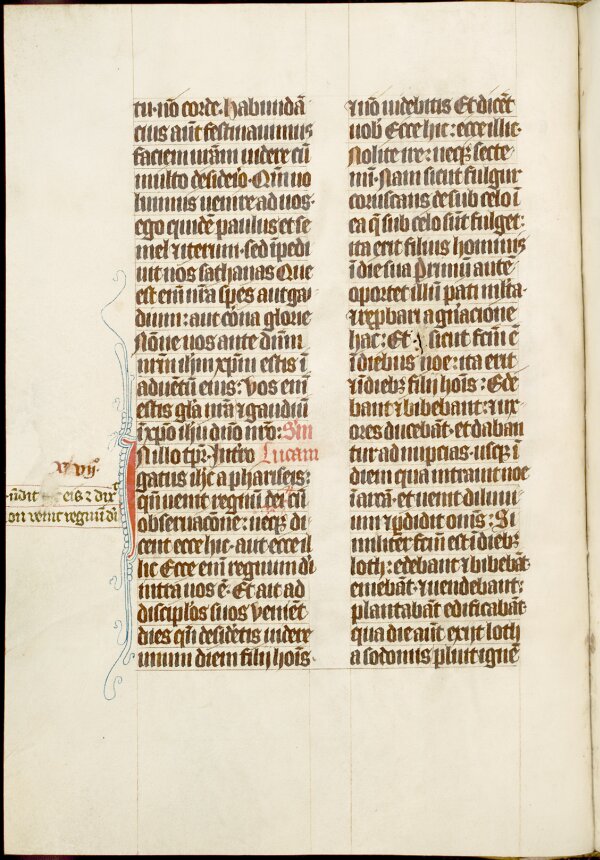 tu· nō corde. Habundā
cius aūt festinauimus
faciem ur̄am uidere cū
multo desid̾io· Qm̄ uo
luimus uenire ad uos·
ego quidē paulus et se
mel ⁊ iterum· sed īpedi
uit nos sathanas Que
est eni᷑ nr̄a spes aut ga
dium: aut corōa glorie
Nōne uos ante dn̄m
nr̄m ihm̄ xp̄m estis ī
aduētū eius: vos eni᷑
estis gl̄a nr̄a ⁊ gaudiū
ī xp̄o ihu dn̄o nr̄o: Sm
IN illo tp̄r· Intro Lucam
gatus ih̄c a phariseis:
qn̄ uenit regnū dei cū
obseruacōne: neqꝫ di
cent ecce hic· aut ecce il
lic Ecce eni᷑ regnum di
intra uos ē· Et ait ad
discip̄los suos Veniēt
dies qn̄ desid̾etis uidere
unum diem filij hoīs·
xvij·
r̄ndit eis ⁊ dix̾
on venit regnū di
⁊ nō uidebitis Et dicēt
uob̾ Ecce hic: ecce illic·
Nolite ire: neqꝫ secte
mi᷑· Nam sicut fulgur
coruscans de sub celo ī
ea q̄ sub celo sūt fulget:
ita erit filius hominis
ī die sua Primū autē
oportet illū pati multa·
⁊ rep̄bari a gn̄acione
hac: Et sicut fcm̄ ē
ī diebus noe: ita erit
⁊ ī diebꝫ filij hoīs: Ede
bant ⁊ bibebant: ⁊ ux
ores ducebāt· et daban
tur ad nupcias· usqꝫ ī
diem qua intrauit noe
ī arcā· et uenit diluui
um ⁊ ꝑdidit om̄s: Si
militer fcm̄ est ī diebꝫ
loth: edebant ⁊ bibebāt·
emebāt· ⁊ uendebant:
plantabāt edificabāt·
qua die aūt exijt loth
a sodomis pluit ignē